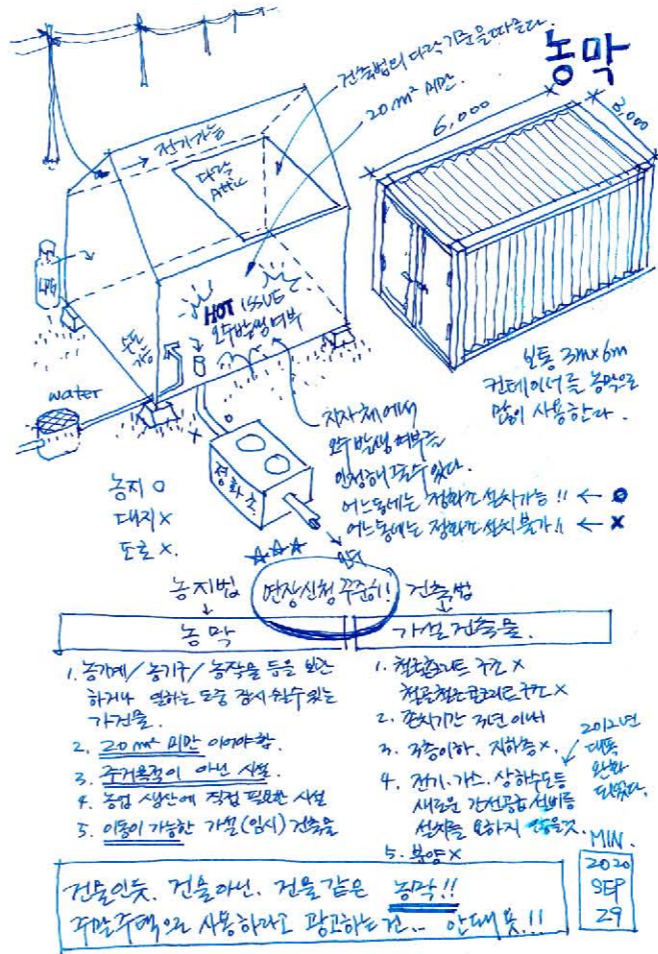 농막
건축법의 다락 기준을 따른다.
20m² 미만.
6,000
3,000
전기가능
다락
Attic
LPG
HOT ISSUE
오수발생여부
수도
가능
water
정화조
보통 3m×6m
컨테이너를 농막으로
많이 사용한다.
지자체에서
오수발생여부를
인정해 줄수 있다.
어느동네는 정화조 설치가능!! ← O
어느동네는 정화조 설치불가!! ← X
농지 O
대지 X
도로 X.
☆☆☆
연장신청 꾸준히!
농지법
건축법
농막
가설건축물.
1. 농기계/농기구/농작물 등을 보관
하거나 일하는 도중 잠시 쉴수 있는
가건물.
2. 20m² 미만 이어야함.
3. 주거목적이 아닌 시설.
4. 농업 생산에 직접 필요한 시설
5. 이동이 가능한 가설(임시) 건축물
1. 철근콘크리트 구조 X
철골철근콘크리트구조 X
2. 존치기간 3년 이내
3. 3층이하, 지하층 X.
4. 전기.가스.상하수도등
새로운 간선공급설비를
설치를 요하지 않을것.
5. 분양 X
2012년
대폭
완화
되었다.
건물인듯. 건물아닌. 건물같은 농막!!
주말주택으로 사용하라고 광고하는건.. 안돼욧.!!
MIN.
2020
SEP
29